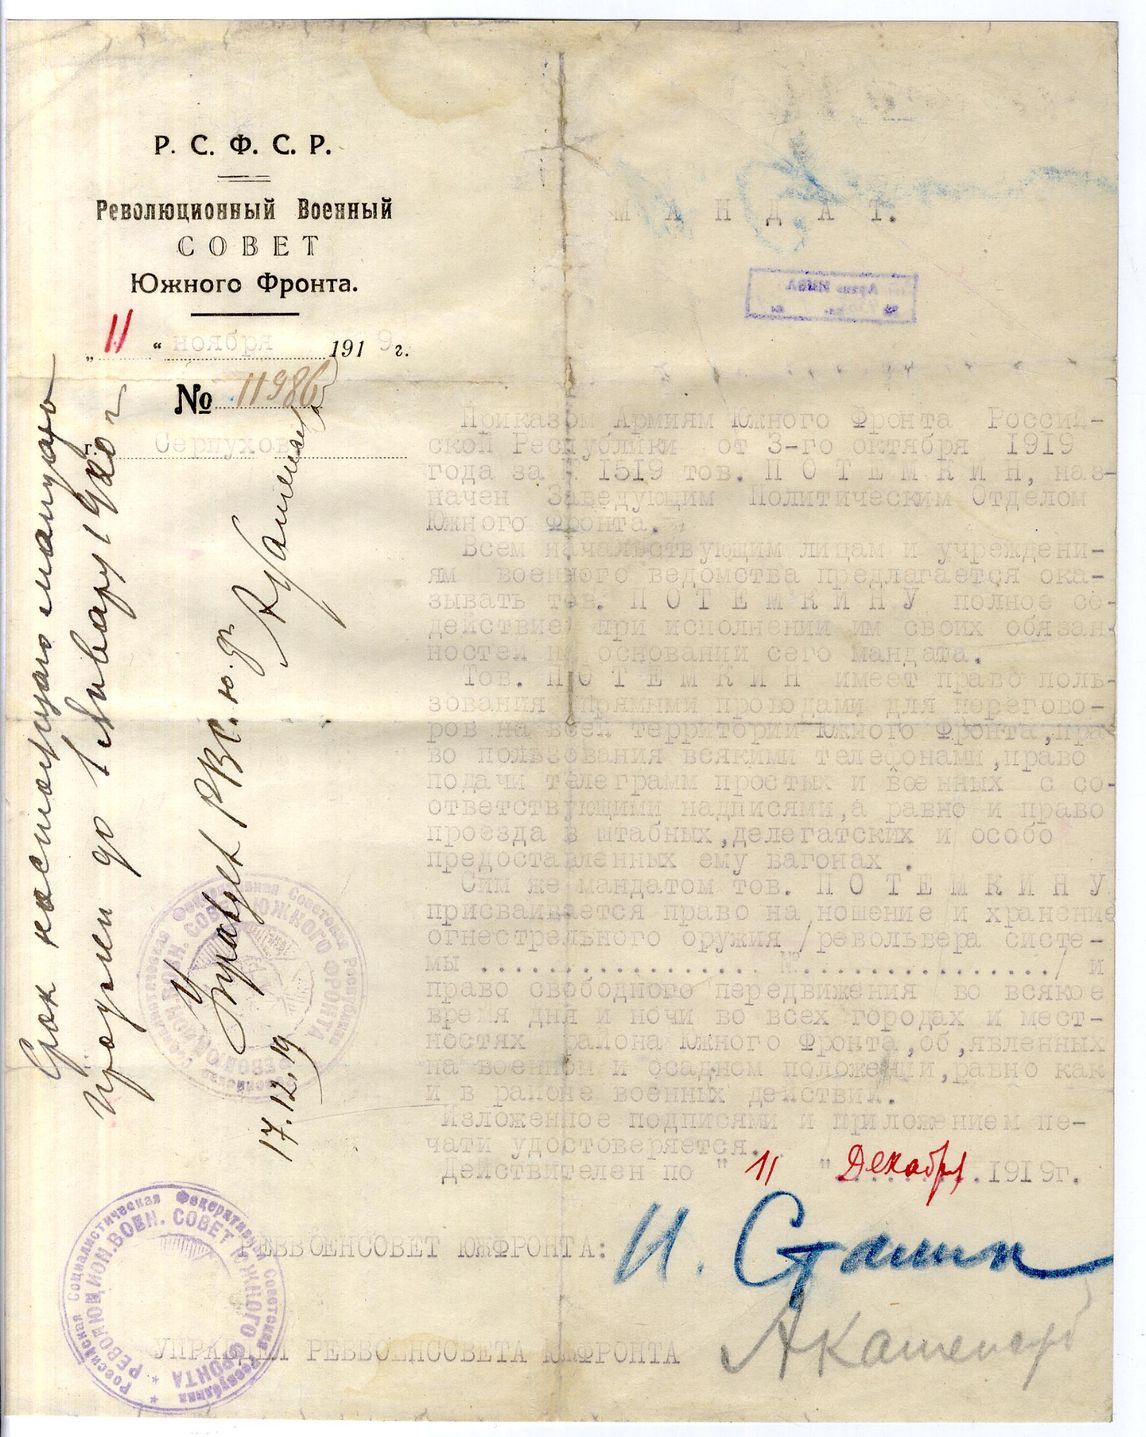 Р. С. Ф. С. Р.
Революционный Военный
СОВЕТ
Южного Фронта.
„ 11 “ ноября 1919 г.
№ 11986
г. Серпухов
МАНДАТ.
Приказом Армиям Южного Фронта Россий-
ской Республики от 3-го октября 1919
года за № 1519 тов. ПОТЕМКИН, наз-
начен Заведующим Политическим Отделом
Южного Фронта.
Всем начальствующим лицам и учреждени-
ям военного ведомства предлагается ока-
зывать тов. ПОТЕМКИНУ полное со-
действие при исполнении им своих обязан-
ностей на основании сего мандата.
Тов. ПОТЕМКИН имеет право поль-
зования прямыми проводами для перегово-
ров на всей территории Южного Фронта, пра-
во пользования всякими телефонами, право
подачи телеграмм простых и военных с со-
ответствующими надписями, а равно и право
проезда в штабных, делегатских и особо
предоставленных ему вагонах .
Сим же мандатом тов. ПОТЕМКИНУ
присваивается право на ношение и хранение
огнестрельного оружия /револьвера систе-
мы .................. №................/ и
право свободного передвижения во всякое
время дня и ночи во всех городах и мест-
ностях района Южного Фронта, об,явленных
на военном и осадном положении, равно как
и в районе военных действий.
Изложенное подписями и приложением пе-
чати удостоверяется.
Действителен по " 11 " Декабря 1919г.
РЕВВОЕНСОВЕТ ЮЖФРОНТА: И. Сталин
УПРАВДЕЛ РЕВВОЕНСОВЕТА ЮЖФРОНТА
Срок настоящего мандата
продлен до 1 Января 1920 г
Управдел РВС. Ю. фр.
17.12.19
Российская Социалистическая Федеративная Советская Республика
РЕВОЛЮЦИОН. ВОЕН. СОВЕТ ЮЖНОГО ФРОНТА
Российская Социалистическая Федеративная Советская Республика
РЕВОЛЮЦИОН. ВОЕН. СОВЕТ ЮЖНОГО ФРОНТА